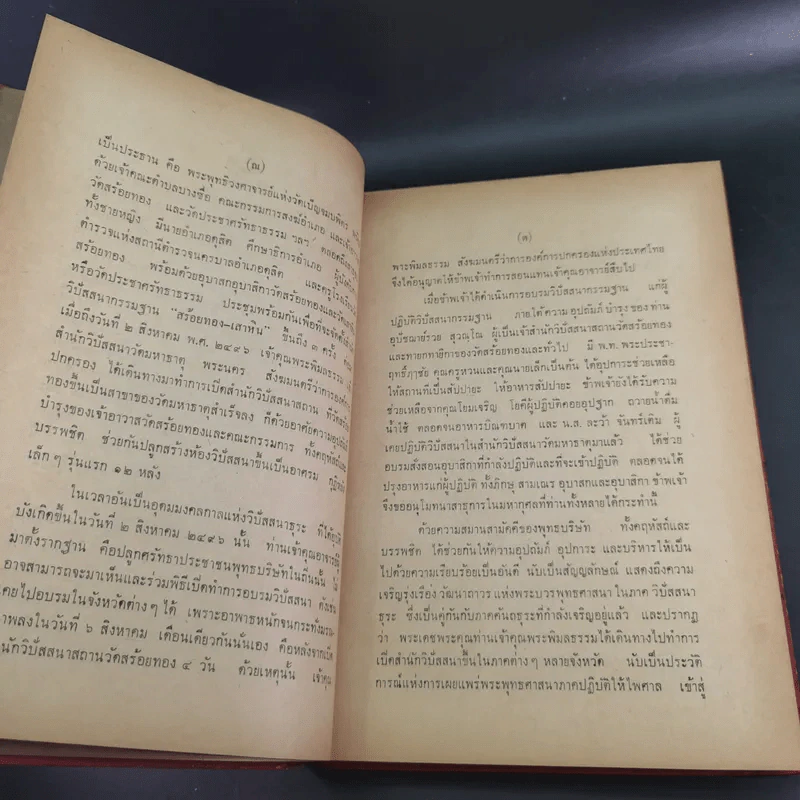 (ณ)
เป็นประธาน คือ พระพุทธิวงศาจารย์แห่งวัดเบ็ญจมบพิตร
ด้วยเจ้าคณะตำบลบางซื่อ คณะกรรมการสงฆ์อำเภอ และเจ้าอาวาส
วัดสร้อยทอง และวัดประชาศรัทธาธรรม ฯลฯ
ทั้งชายหญิง มีนายอำเภอดุสิต ศึกษาธิการอำเภอ
ตำรวจแห่งสถานีตำรวจนครบาลอำเภอดุสิต และครูโรงเรียน
สร้อยทอง พร้อมด้วยอุบาสกอุบาสิกาวัดสร้อยทองและวัดเสาหิน
หรือวัดประชาศรัทธาธรรม ประชุมพร้อมกันเพื่อที่จะจัดตั้ง
วิปัสสนากรรมฐาน "สร้อยทอง-เสาหิน" ขึ้นถึง ๓ ครั้ง
เมื่อถึงวันที่ ๒ สิงหาคม พ.ศ. ๒๔๙๖ เจ้าคุณพระพิมลธรรม
สำนักวิปัสสนาวัดมหาธาตุ พระนคร สังฆมนตรีว่าการองค์การ
ปกครอง ได้เดินทางมาทำการเปิดสำนักวิปัสสนาสถาน ที่วัดสร้อย
ทองขึ้นเป็นสาขาของวัดมหาธาตุสำเร็จลง ก็ด้วยอาศัยความอุปถัมภ์
บำรุงของเจ้าอาวาสวัดสร้อยทองและคณะกรรมการ ทั้งคฤหัสถ์และ
บรรพชิต ช่วยกันปลูกสร้างห้องวิปัสสนาขึ้นเป็นอาศรม
เล็กๆ รุ่นแรก ๑๒ หลัง
ในเวลาอันเป็นอุดมมงคลกาลแห่งวิปัสสนาธุระ ที่ได้อุบัติ
บังเกิดขึ้นในวันที่ ๒ สิงหาคม ๒๔๙๖ นั้น ท่านเจ้าคุณอาจารย์
มาตั้งรากฐาน คือปลูกศรัทธาประชาชนพุทธบริษัทในถิ่นนั้น ไม่
อาจสามารถจะมาเห็นและร่วมพิธีเปิดทำการอบรมวิปัสสนา ดังเช่น
เคยไปอบรมในจังหวัดต่างๆ ได้ เพราะอาพาธหนักจนกระทั่งมรณ
ภาพลงในวันที่ ๖ สิงหาคม เดือนเดียวกันนั้นเอง คือหลังจากเปิด
สำนักวิปัสสนาสถานวัดสร้อยทอง ๔ วัน ด้วยเหตุนั้น เจ้าคุณ
(ด)
พระพิมลธรรม สังฆมนตรีว่าการองค์การปกครองแห่งประเทศไทย
จึงได้อนุญาตให้ข้าพเจ้าทำการสอนแทนเจ้าคุณอาจารย์สืบไป
เมื่อข้าพเจ้าได้ดำเนินการอบรมวิปัสสนากรรมฐาน แก่ผู้
ปฏิบัติวิปัสสนากรรมฐาน ภายใต้ความอุปถัมภ์บำรุงของท่าน
อุปัชฌาย์รวย สุวณฺโณ ผู้เป็นเจ้าสำนักวิปัสสนาสถานวัดสร้อยทอง
และทายกทายิกาของวัดสร้อยทองและทั่วไป มี พ.ท. พระประชา
ฤทธิ์ภาชัย คุณครูหวนและคุณนายเล็กเป็นต้น ได้อุปการะช่วยเหลือ
ให้สถานที่เป็นสัปปายะ ให้อาหารสัปปายะ ข้าพเจ้ายังได้รับความ
ช่วยเหลือจากคุณโยมเจริญ โยคีผู้ปฏิบัติคอยอุปฐาก ถวายน้ำดื่ม
น้ำใช้ ตลอดจนอาหารบิณฑบาต และ น.ส. ละว้า จันทร์เติม ผู้
เคยปฏิบัติวิปัสสนาในสำนักวิปัสสนาวัดมหาธาตุมาแล้ว ได้ช่วย
อบรมสั่งสอนอุบาสิกาที่กำลังปฏิบัติและที่จะเข้าปฏิบัติ ตลอดจนได้
ปรุงอาหารแก่ผู้ปฏิบัติ ทั้งภิกษุ สามเณร อุบาสกและอุบาสิกา ข้าพเจ้า
จึงขออนุโมทนาสาธุการในมหากุศลที่ท่านทั้งหลายได้กระทำนี้
ด้วยความสมานสามัคคีของพุทธบริษัท ทั้งคฤหัสถ์และ
บรรพชิต ได้ช่วยกันให้ความอุปถัมภ์ อุปการะ และบริหารให้เป็น
ไปด้วยความเรียบร้อยเป็นอันดี นับเป็นสัญญลักษณ์ แสดงถึงความ
เจริญรุ่งเรือง วัฒนาถาวร แห่งพระบวรพุทธศาสนา ในภาค วิปัสสนา
ธุระ ซึ่งเป็นคู่กันกับภาคคันถธุระที่กำลังเจริญอยู่แล้ว และปรากฏ
ว่า พระเดชพระคุณท่านเจ้าคุณพระพิมลธรรมได้เดินทางไปทำการ
เปิดสำนักวิปัสสนาขึ้นในภาคต่างๆ หลายจังหวัด นับเป็นประวัติ
การณ์แห่งการเผยแพร่พระพุทธศาสนาภาคปฏิบัติให้ไพศาล เข้าสู่